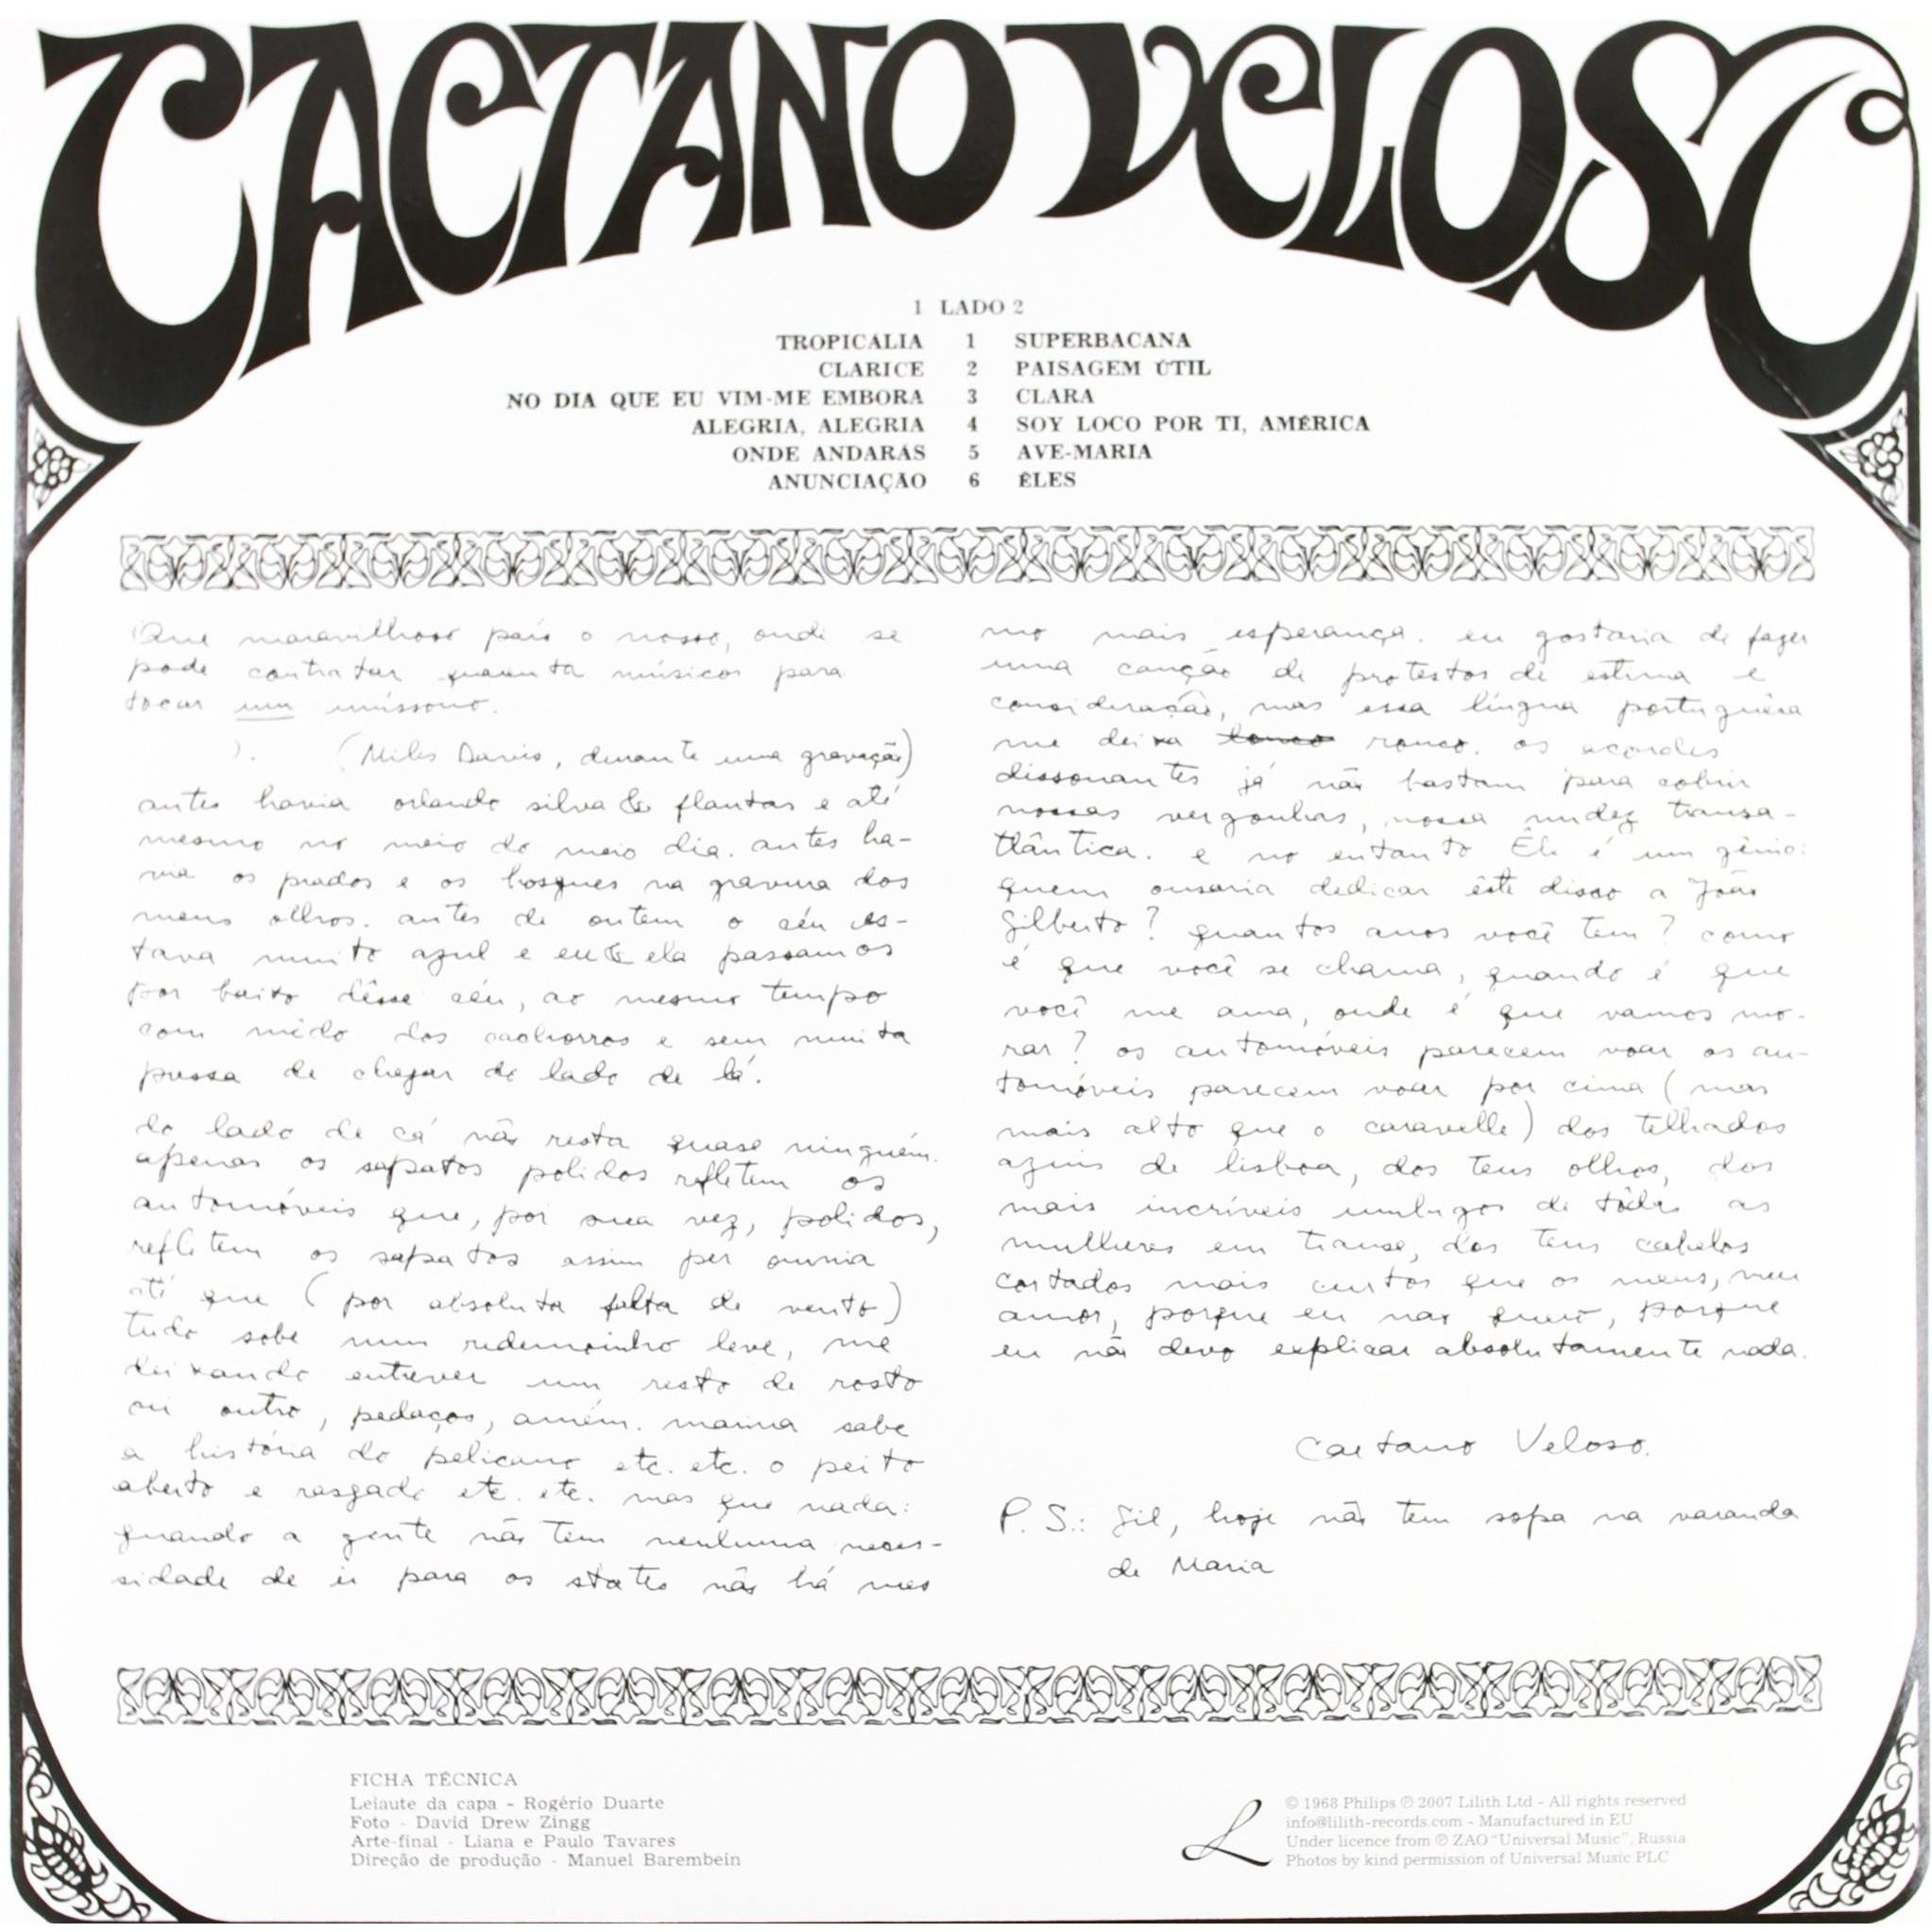 CAETANO VELOSO
1 LADO 2
TROPICÁLIA 1 SUPERBACANA
CLARICE 2 PAISAGEM ÚTIL
NO DIA QUE EU VIM-ME EMBORA 3 CLARA
ALEGRIA, ALEGRIA 4 SOY LOCO POR TI, AMÉRICA
ONDE ANDARÁS 5 AVE-MARIA
ANUNCIAÇÃO 6 ÊLES
Que maravilhoso país o nosso, onde se
pode contratar quarenta músicos para
tocar um uníssono.
(Miles Davis, durante uma gravação)
antes havia orlando silva & flautas e até
mesmo no meio do meio dia. antes ha-
via os prados e os bosques na gravura dos
meus olhos. antes de ontem o céu es-
tava muito azul e eu & ela passamos
por baixo dêsse céu, ao mesmo tempo
com mêdo dos cachorros e sem muita
pressa de chegar do lado de lá.
do lado de cá não resta quase ninguém.
apenas os sapatos polidos refletem os
automóveis que, por sua vez, polidos,
refletem os sapatos assim per omnia
até que (por absoluta falta de vento)
tudo sobe num redemoinho leve, me
deixando entrever um resto de rosto
ou outro, pedaços, amém. marina sabe
a história do pelicano etc. etc. o peito
aberto e rasgado etc. etc. mas que nada:
quando a gente não tem nenhuma neces-
sidade de ir para os states não há mes
mo mais esperança. eu gostaria de fazer
uma canção de protestos de estima e
consideração, mas essa língua portuguêsa
me deixa louco rouco. os acordes
dissonantes já não bastam para cobrir
nossas vergonhas, nossa nudez transa-
tlântica. e no entanto Êle é um gênio:
quem ousaria dedicar êste disco a João
Gilberto? quantos anos você tem? como
é que você se chama, quando é que
você me ama, onde é que vamos mo-
rar? os automóveis parecem voar os au-
tomóveis parecem voar por cima (mas
mais alto que o caravelle) dos telhados
azuis de lisboa, dos teus olhos, dos
mais incríveis umbigos de tôdas as
mulheres em transe, dos teus cabelos
cortados mais curtos que os meus, meu
amor, porque eu não quero, porque
eu não devo explicar absolutamente nada.
Caetano Veloso.
P. S.: Gil, hoje não tem sopa na varanda
de Maria
FICHA TÉCNICA
Leiaute da capa - Rogério Duarte
Foto - David Drew Zingg
Arte-final - Liana e Paulo Tavares
Direção de produção - Manuel Barembein
L
© 1968 Philips ℗ 2007 Lilith Ltd - All rights reserved
info@lilith-records.com - Manufactured in EU
Under licence from ℗ ZAO "Universal Music", Russia
Photos by kind permission of Universal Music PLC